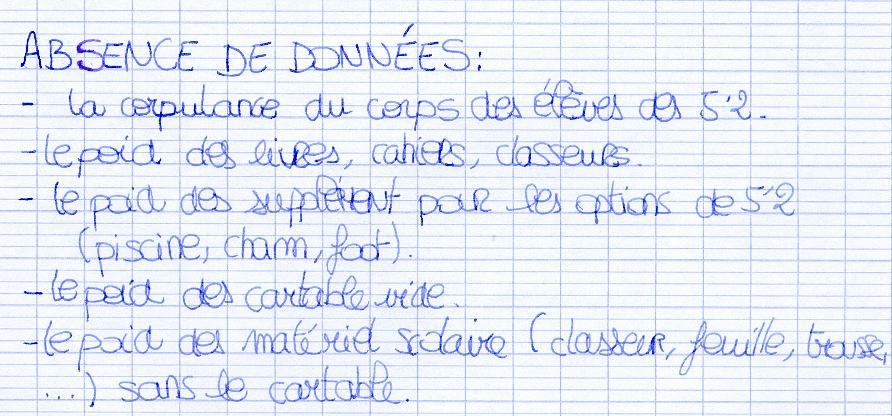 ABSENCE DE DONNÉES:
- la corpulance du corps des élèves des 5°2.
- le poid des livres, cahiers, classeurs.
- le poid des supplément pour les options de 5°2
(piscine, cham, foot).
- le poid des cartable vide.
- le poid des matériel scolaire (classeur, feuille, trousse,
...) sans le cartable.